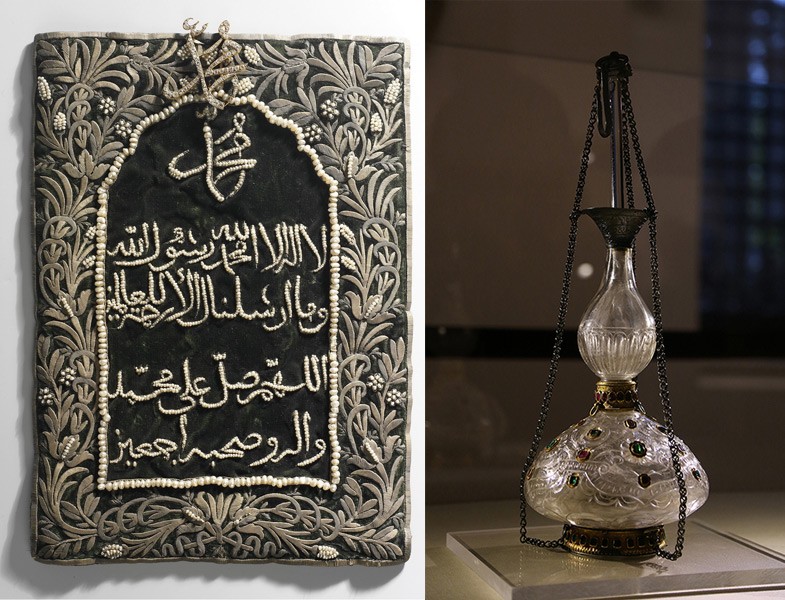 محمد
لا اله الا الله محمد رسول الله
وما ارسلناك الا رحمة للعالمين
اللهم صلّ على محمّد
واله وصحبه اجمعين